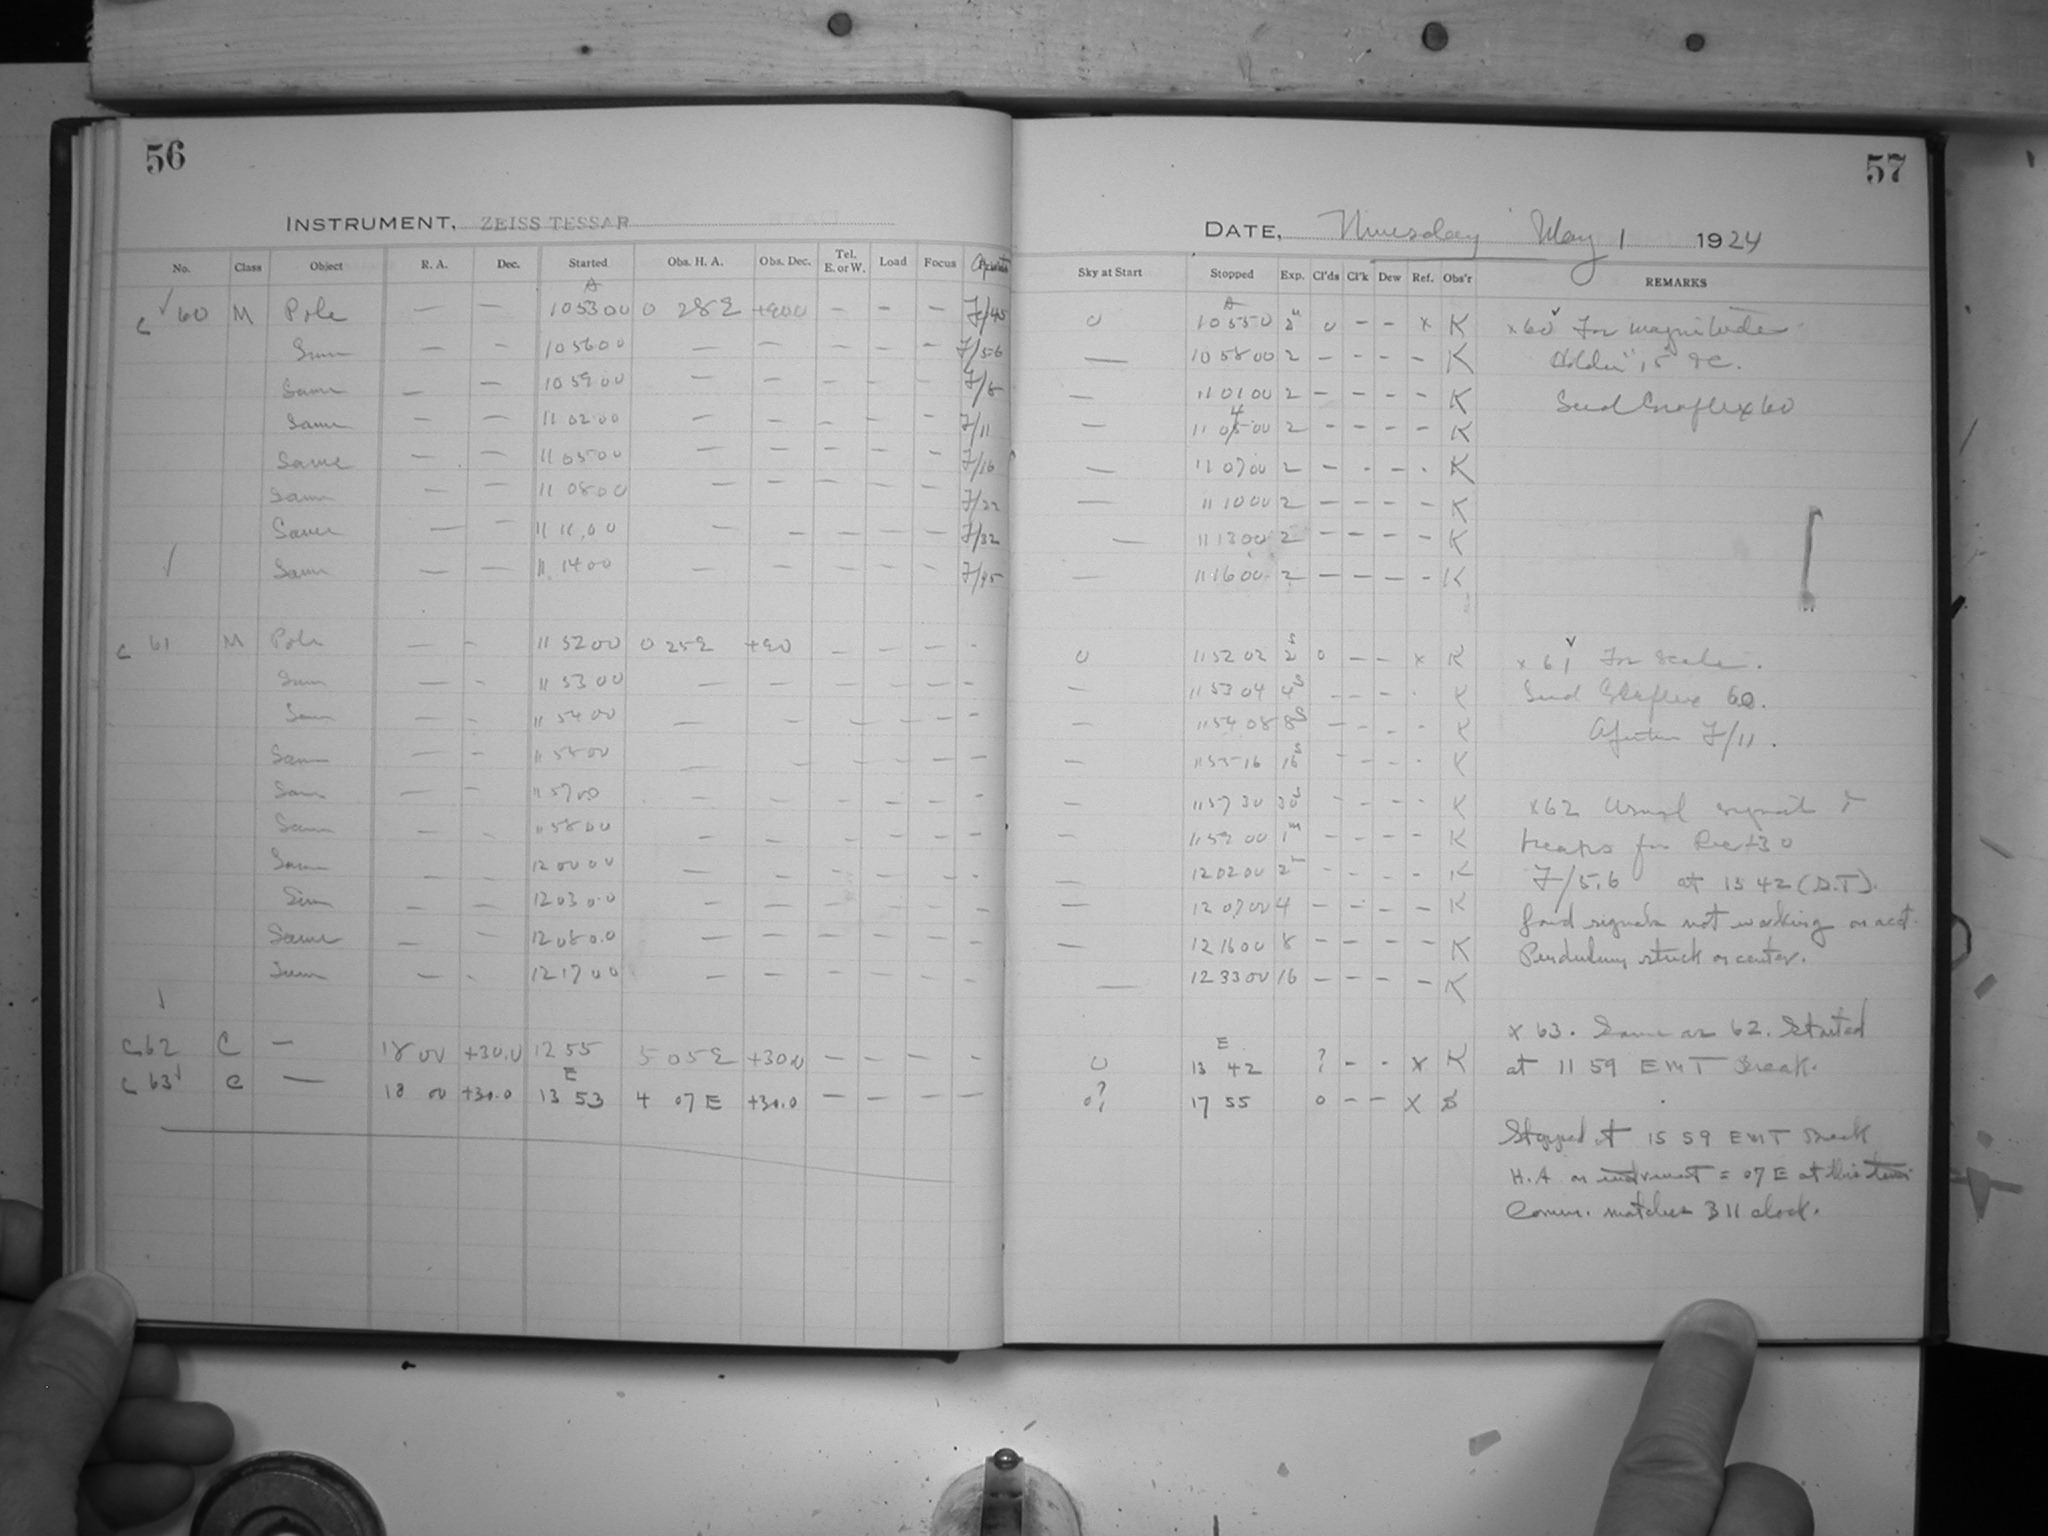 56
INSTRUMENT, ZEISS TESSAR
No. Class Object R. A. Dec. Started Obs. H. A. Obs. Dec. Tel. E. or W. Load Focus
C 60 M Pole — — 10 53 00 0 28 E +900 — — — F/4.5
Same — — 10 56 00 — — — — — F/5.6
Same — — 10 59 00 — — — — — F/8
Same — — 11 02 00 — — — — — F/11
Same — — 11 05 00 — — — — — F/16
Same — — 11 08 00 — — — — — F/22
Same — — 11 11 00 — — — — — F/32
Same — — 11 14 00 — — — — — F/45
C 61 M Pole — — 11 52 00 0 25 E +90 — — — -
Same — - 11 53 00 — — — — — -
Same — - 11 54 00 — — — — — -
Same — - 11 55 00 — — — — — -
Same — - 11 57 00 — — — — — -
Same — - 11 58 00 — — — — — -
Same — - 12 00 00 — — — — — -
Same — — 12 03 00 — — — — — -
Same — — 12 08 00 — — — — — -
Same — - 12 17 00 — — — — — -
C 62 C — 18 00 +30.0 12 55 5 05 E +30.0 — — — -
E
C 63 C — 18 00 +30.0 13 53 4 07 E +30.0 — — — —
57
DATE, Thursday May 1 1924
Sky at Start Stopped Exp. Cl'ds Cl'k Dew Ref. Obs'r REMARKS
0 10 55 0 2m 0 - - x K
— 10 58 00 2 - - - - K
— 11 01 00 2 - - - - K
— 11 05 00 2 - - - - K
4
— 11 07 00 2 - - - - K
— 11 10 00 2 - - - - K
— 11 13 00 2 - - - - K
— 11 16 00 2 - - - - K
0 11 52 02 2s 0 - - x K
— 11 53 04 4s - - - - K
— 11 54 08 8s - - - - K
— 11 55 16 16s - - - - K
— 11 57 30 30s - - - - K
— 11 59 00 1m - - - - K
— 12 02 00 2m - - - - K
— 12 07 00 4 - - - - K
— 12 16 00 8 - - - - K
— 12 33 00 16 - - - - K
E
0 13 42 ? - - x K
0? 17 55 0 - - x
x 60 For magnitude
Holder 15 &c.
Send Graflex 60
x 61 For scale.
Send Graflex 60.
F/11.
x 62 Usual
for Dec +30
F/5.6 at 13 42 (D.T).
found signals not working on acct.
Pendulum stuck on center.
x 63. Same as 62. Started
at 11 59 EMT Break.
Stopped at 15 59 EMT Break
H.A on instrument = 07 E at this time
Comm. matches 311 clock.